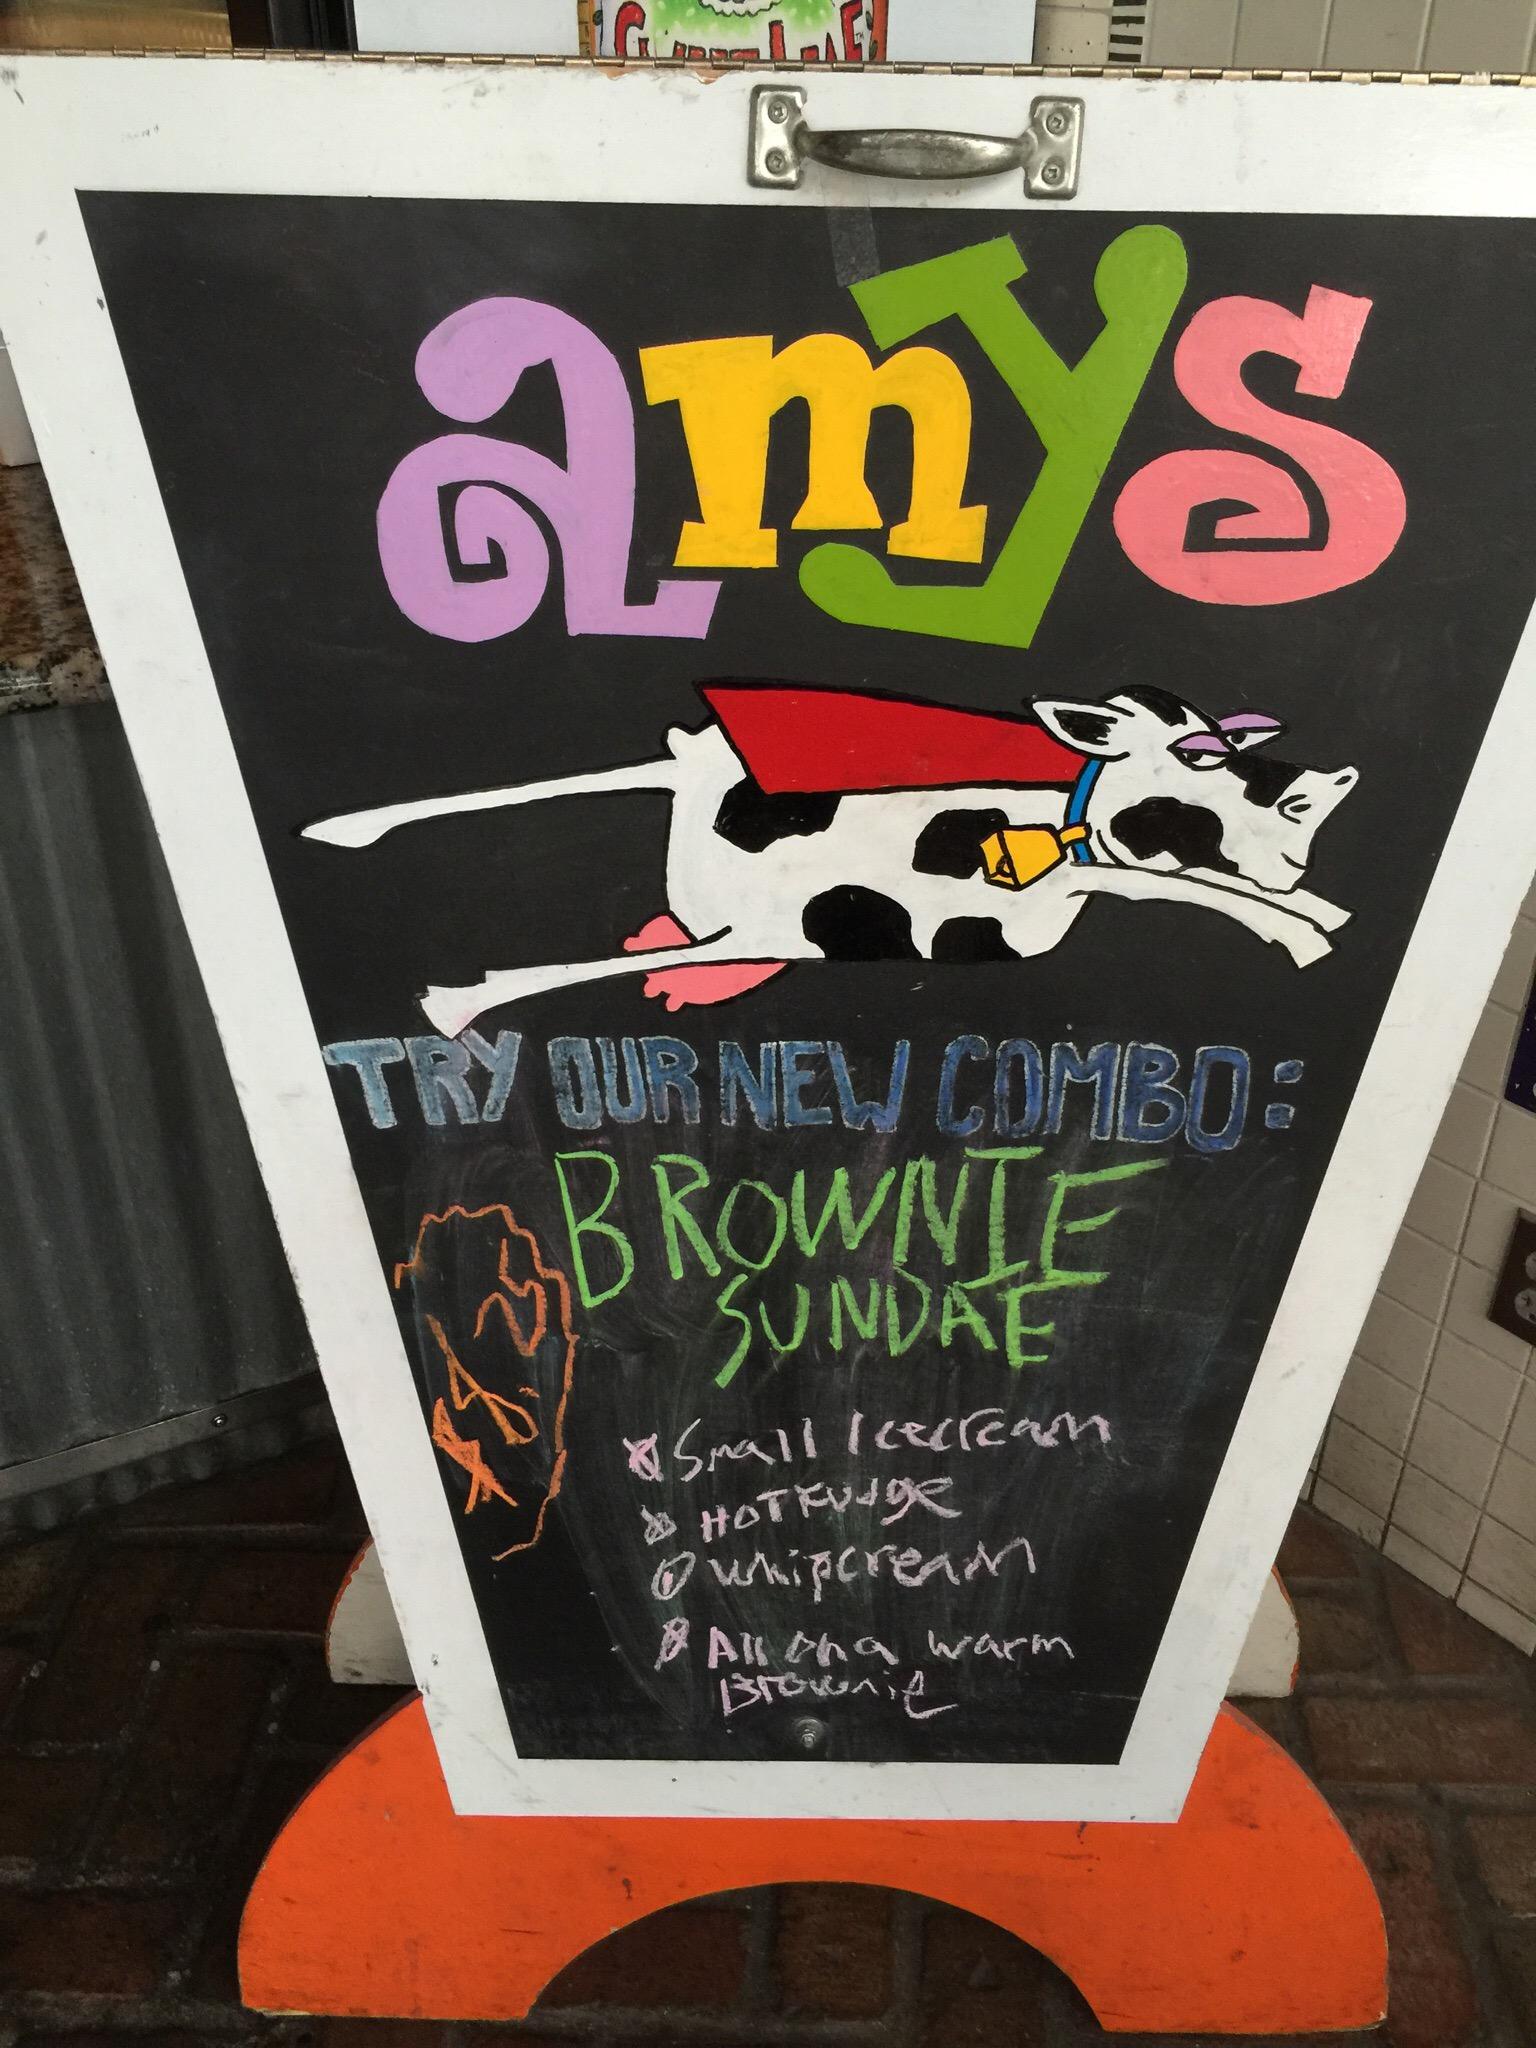 amys
TRY OUR NEW COMBO:
BROWNIE
SUNDAE
Small Icecream
HOT Fudge
whipcream
All on a warm
Brownie